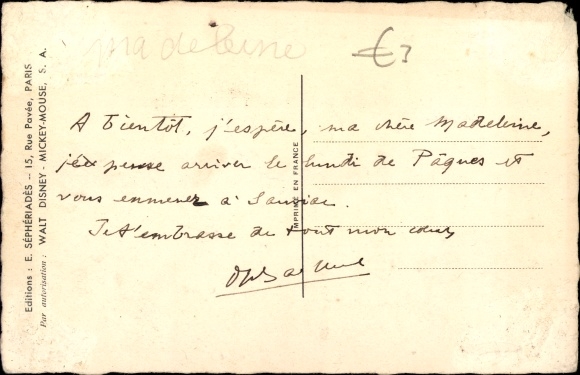 madeleine
€3
A bientôt, j'espère, ma chère Madeleine,
je pense arriver le lundi de Pâques et
vous emmener à
Je t'embrasse de tout mon cœur
Editions : E. SÉPHÉRIADÈS -- 15, Rue Pavée, PARIS
Par autorisation : WALT DISNEY - MICKEY-MOUSE, S. A.
IMPRIMÉ EN FRANCE